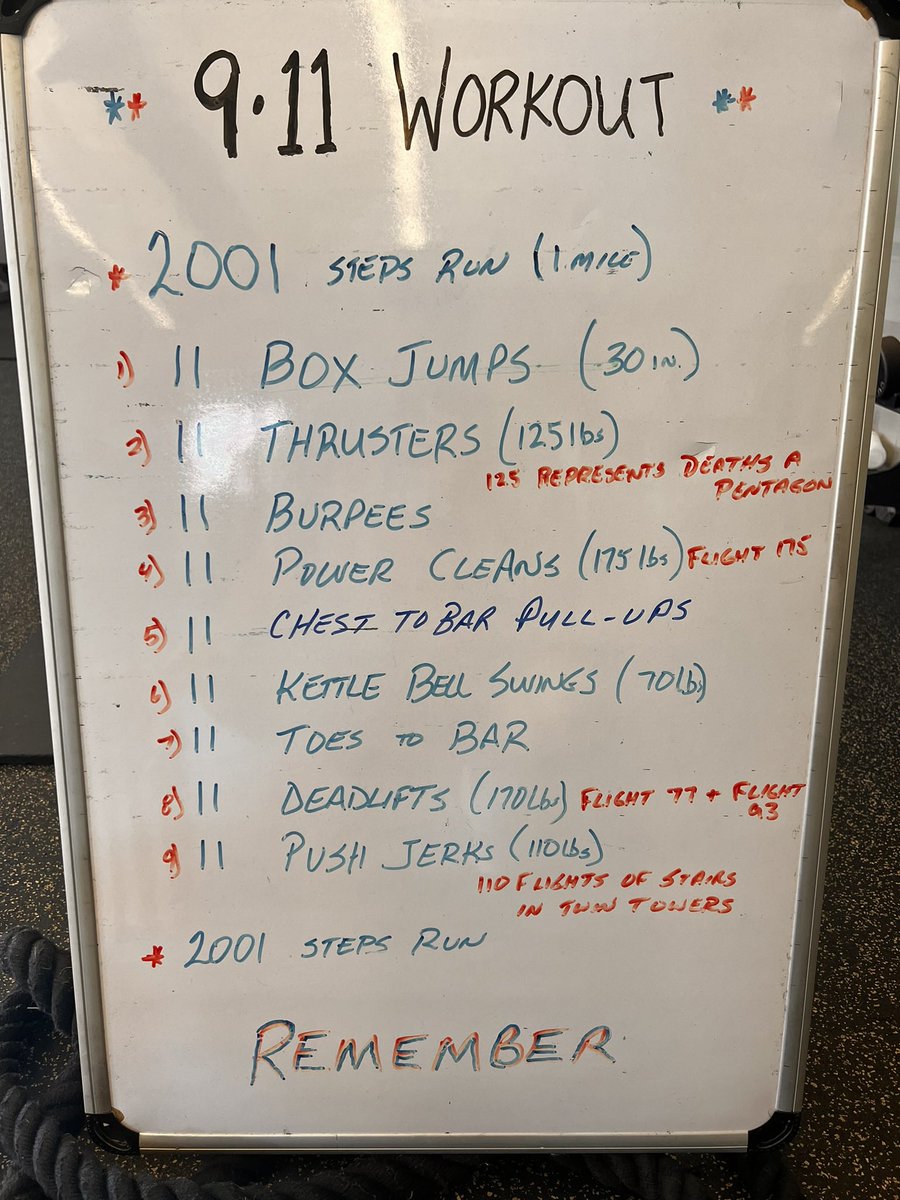 ** 9.11 WORKOUT **
* 2001 STEPS RUN (1 MILE)
1) 11 BOX JUMPS (30 IN.)
2) 11 THRUSTERS (125 lbs)
125 REPRESENTS DEATHS A
PENTAGON
3) 11 BURPEES
4) 11 POWER CLEANS (175 lbs) FLIGHT 175
5) 11 CHEST TO BAR PULL-UPS
6) 11 KETTLE BELL SWINGS (70 lbs)
7) 11 TOES TO BAR
8) 11 DEADLIFTS (170 Lbs) FLIGHT 77 + FLIGHT
93
9) 11 PUSH JERKS (110 lbs)
110 FLIGHTS OF STAIRS
IN TWIN TOWERS
* 2001 STEPS RUN
REMEMBER